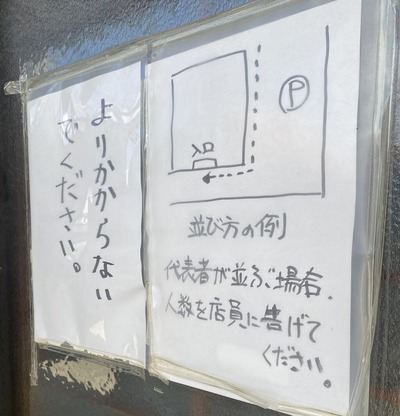 よりかからない
でください。
P
入口
並び方の例
代表者が並ぶ場合、
人数を店員に告げて
ください。